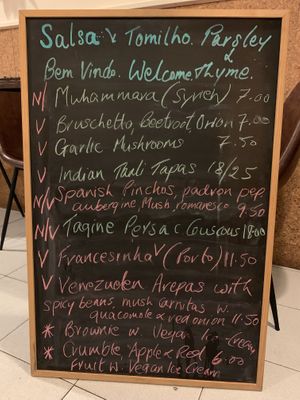 Salsa & Tomilho. Parsley
&
Bem Vindo. Welcome. Thyme.
N/ Muhammara (Syrien) 7.00
V Bruschetta, Beetroot, Onion 7.00
V Garlic Mushrooms 7.50
V Indian Tali Tapas 18/25
N/V Spanish Pinchos, padron pep,
aubergine Mush, romaresco 9.50
N/V Tagine Persa c Couscous 18.00
V Francesinha V (Porto) 11.50
V Venezuelen Arepas with
spicy beans, mush carnitas w.
guacomole & red onion 11.50
* Brownie w. Vegan Ice-Cream
* Crumble, Apple & Red 6.00
Fruit w. Vegan Ice Cream